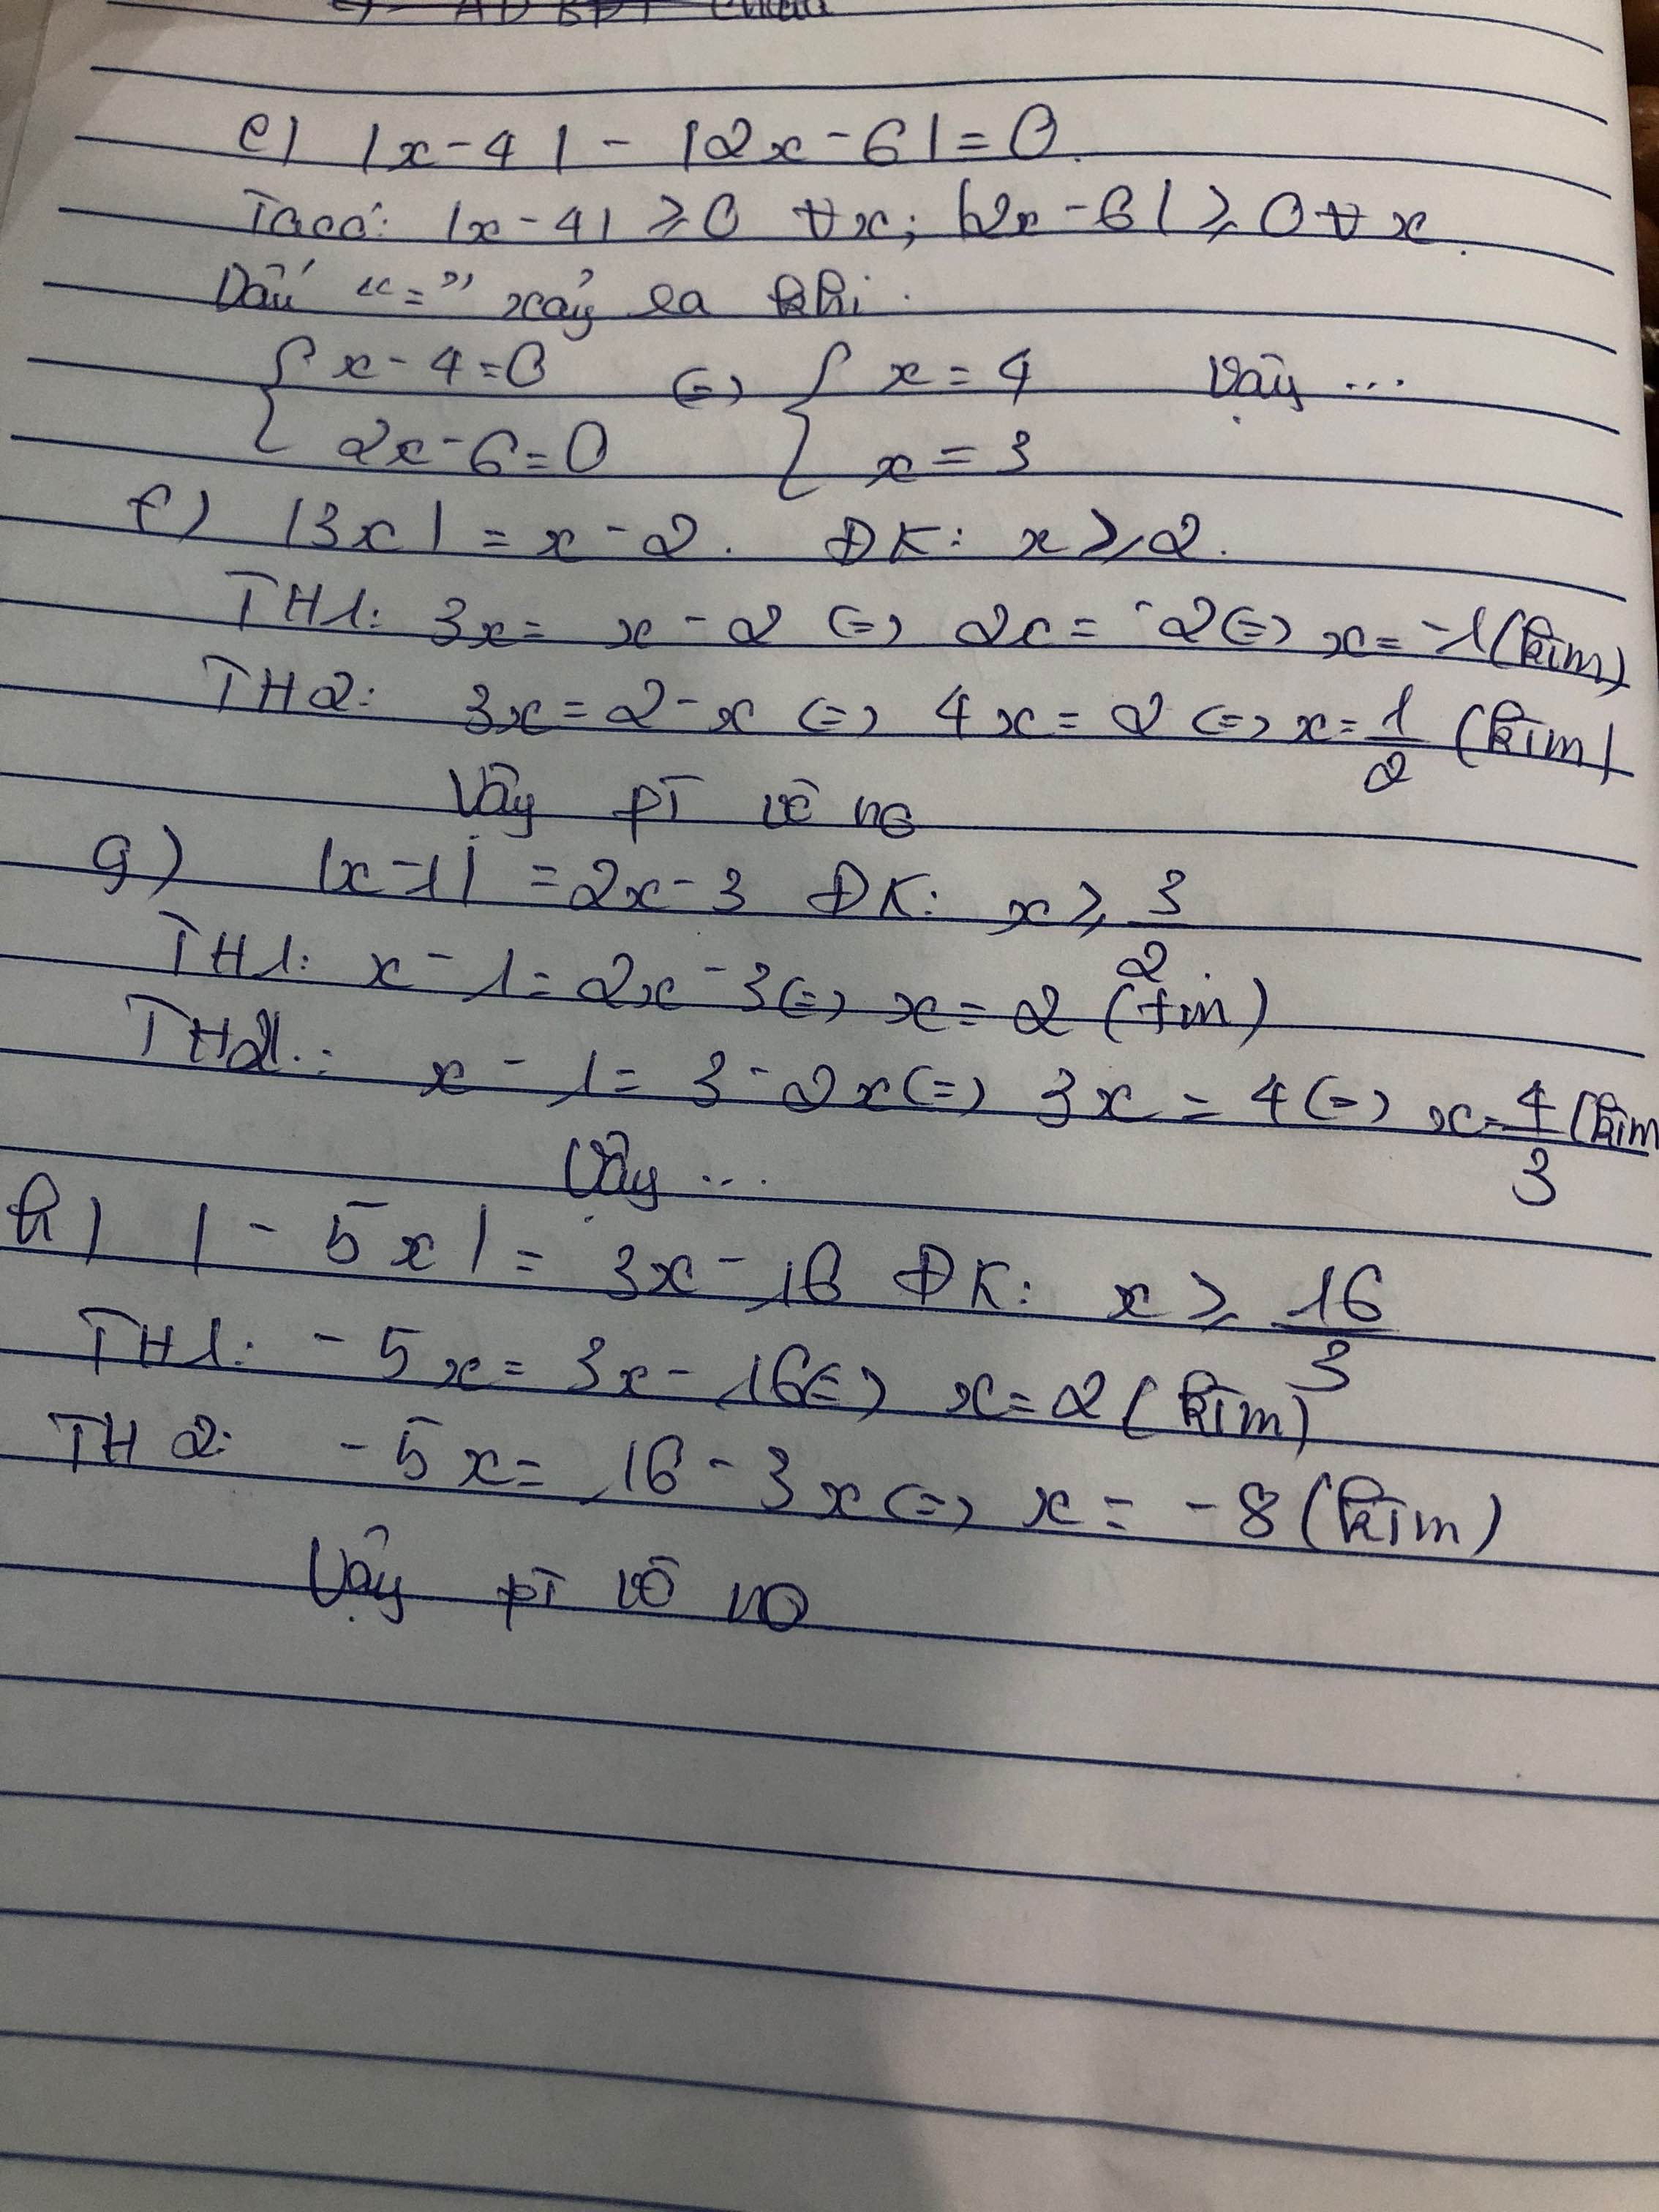 e) |x-4| - |2x-6| = 0.
Ta có: |x-4| ≥ 0 ∀x; |2x-6| ≥ 0 ∀x.
Dấu "=" xảy ra khi.
{ x-4=0 (=) { x = 4 Vậy ...
2x-6=0 x = 3
f) |3x| = x-2. ĐK: x ≥ 2.
TH1: 3x = x-2 (=) 2x = -2 (=) x = -1 (ktm)
TH2: 3x = 2-x (=) 4x = 2 (=) x = 1/2 (ktm)
Vậy pT vô no
g) |x-1| = 2x-3 ĐK: x ≥ 3/2
TH1: x-1 = 2x-3 (=) x = 2 (tm)
TH2: x-1 = 3-2x (=) 3x = 4 (=) x = 4/3 (ktm
Vậy ...
h) |-5x| = 3x-16 ĐK: x ≥ 16/3
TH1: -5x = 3x-16 (=) x = 2 (ktm)
TH2: -5x = 16-3x (=) x = -8 (ktm)
Vậy pT vô no